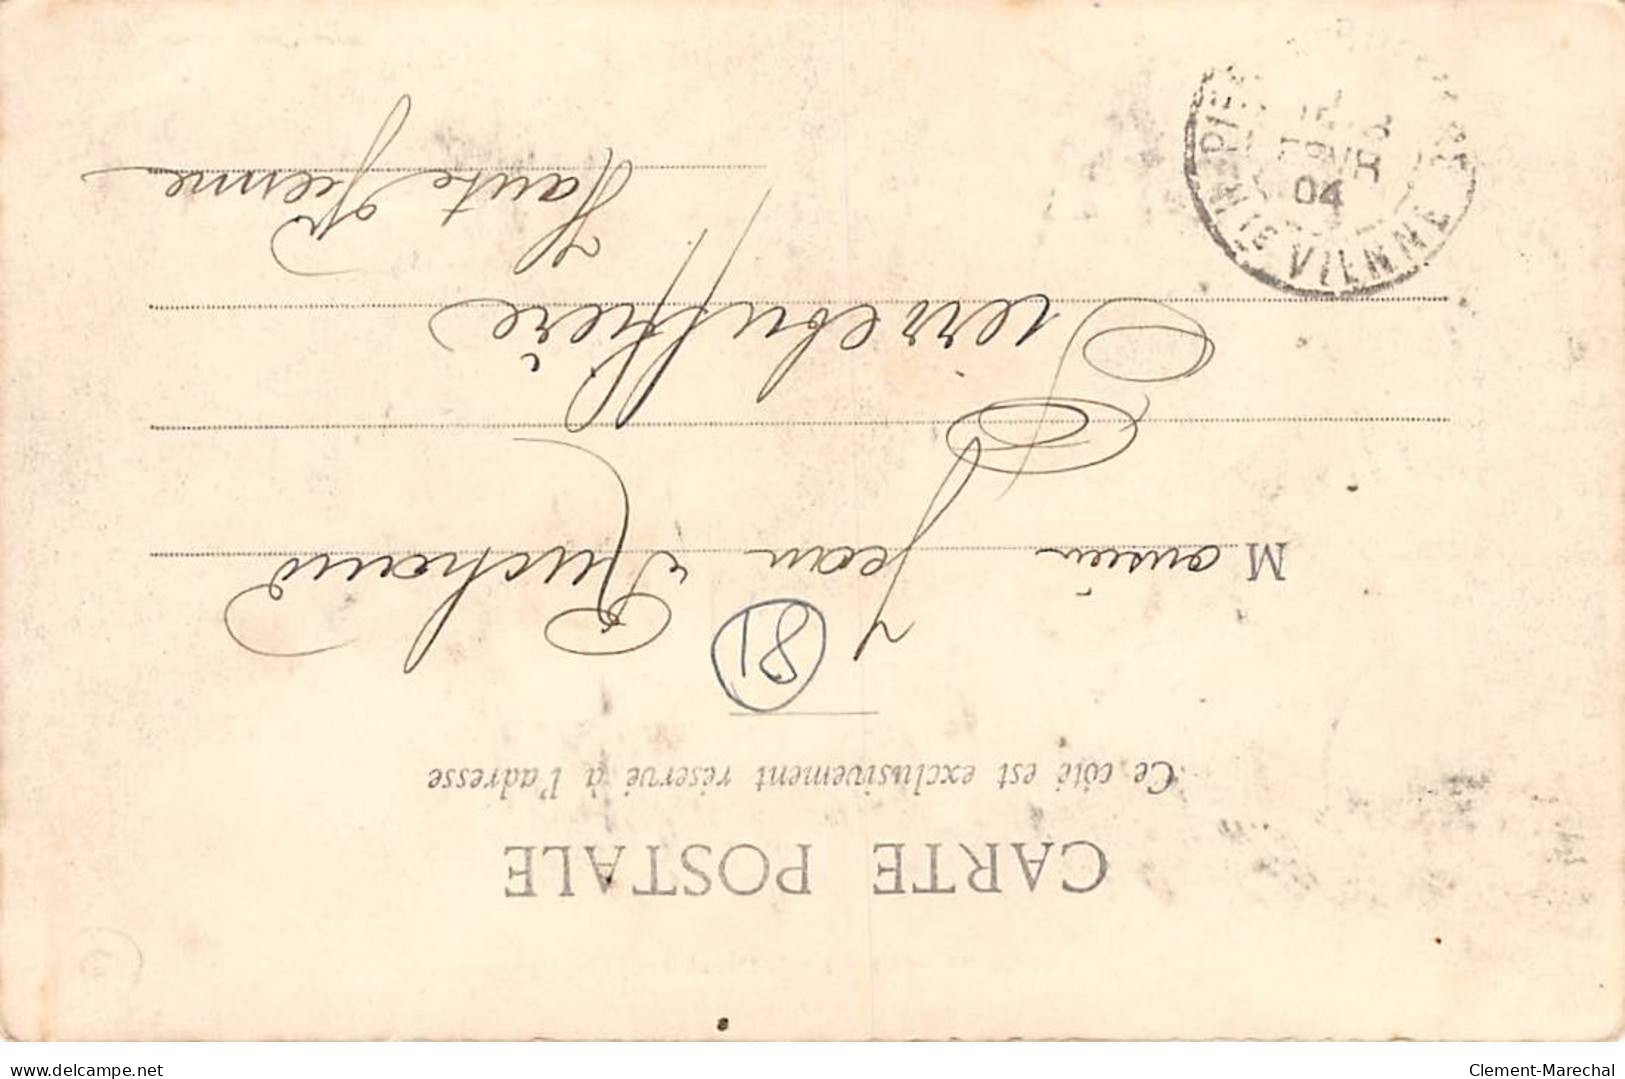 CARTE POSTALE
Ce côté est exclusivement réservé à l'adresse
81
Monsieur Jean Ruchaud
Pierrebuffière
Haute Vienne
04
VIENNE
delcampe.net
Clement-Marechal